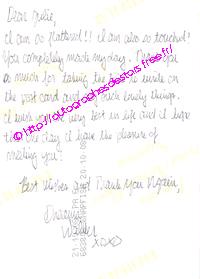 Dear Julie,
I am so flattered!! I am also so touched!
You completely made my day. Thank you
so much for taking the time to write on
the post card and such lovely things.
I wish you the very best in life and I hope
that one day I have the pleasure of
meeting you!
Best Wishes and Thank You Again,
xoxo
http://autographesdestars.free.fr/